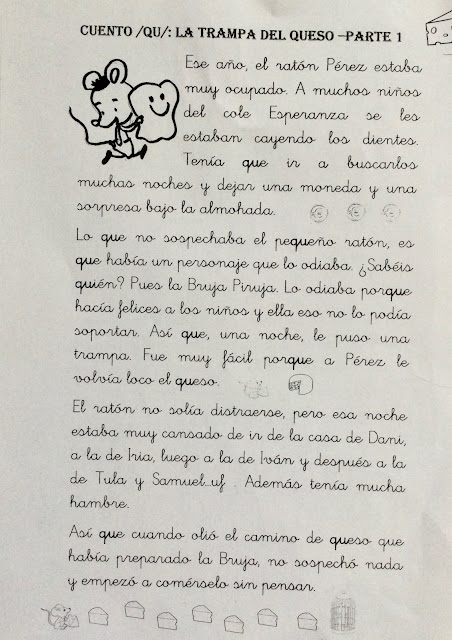 CUENTO /QU/: LA TRAMPA DEL QUESO –PARTE 1
Ese año, el ratón Pérez estaba
muy ocupado. A muchos niños
del cole Esperanza se les
estaban cayendo los dientes.
Tenía que ir a buscarlos
muchas noches y dejar una moneda y una
sorpresa bajo la almohada.
Lo que no sospechaba el pequeño ratón, es
que había un personaje que lo odiaba. ¿Sabéis
quién? Pues la Bruja Piruja. Lo odiaba porque
hacía felices a los niños y ella eso no lo podía
soportar. Así que, una noche, le puso una
trampa. Fue muy fácil porque a Pérez le
volvía loco el queso.
El ratón no solía distraerse, pero esa noche
estaba muy cansado de ir de la casa de Dani,
a la de Iria, luego a la de Iván y después a la
de Tula y Samuel...uf . Además tenía mucha
hambre.
Así que cuando olió el camino de queso que
había preparado la Bruja, no sospechó nada
y empezó a comérselo sin pensar.